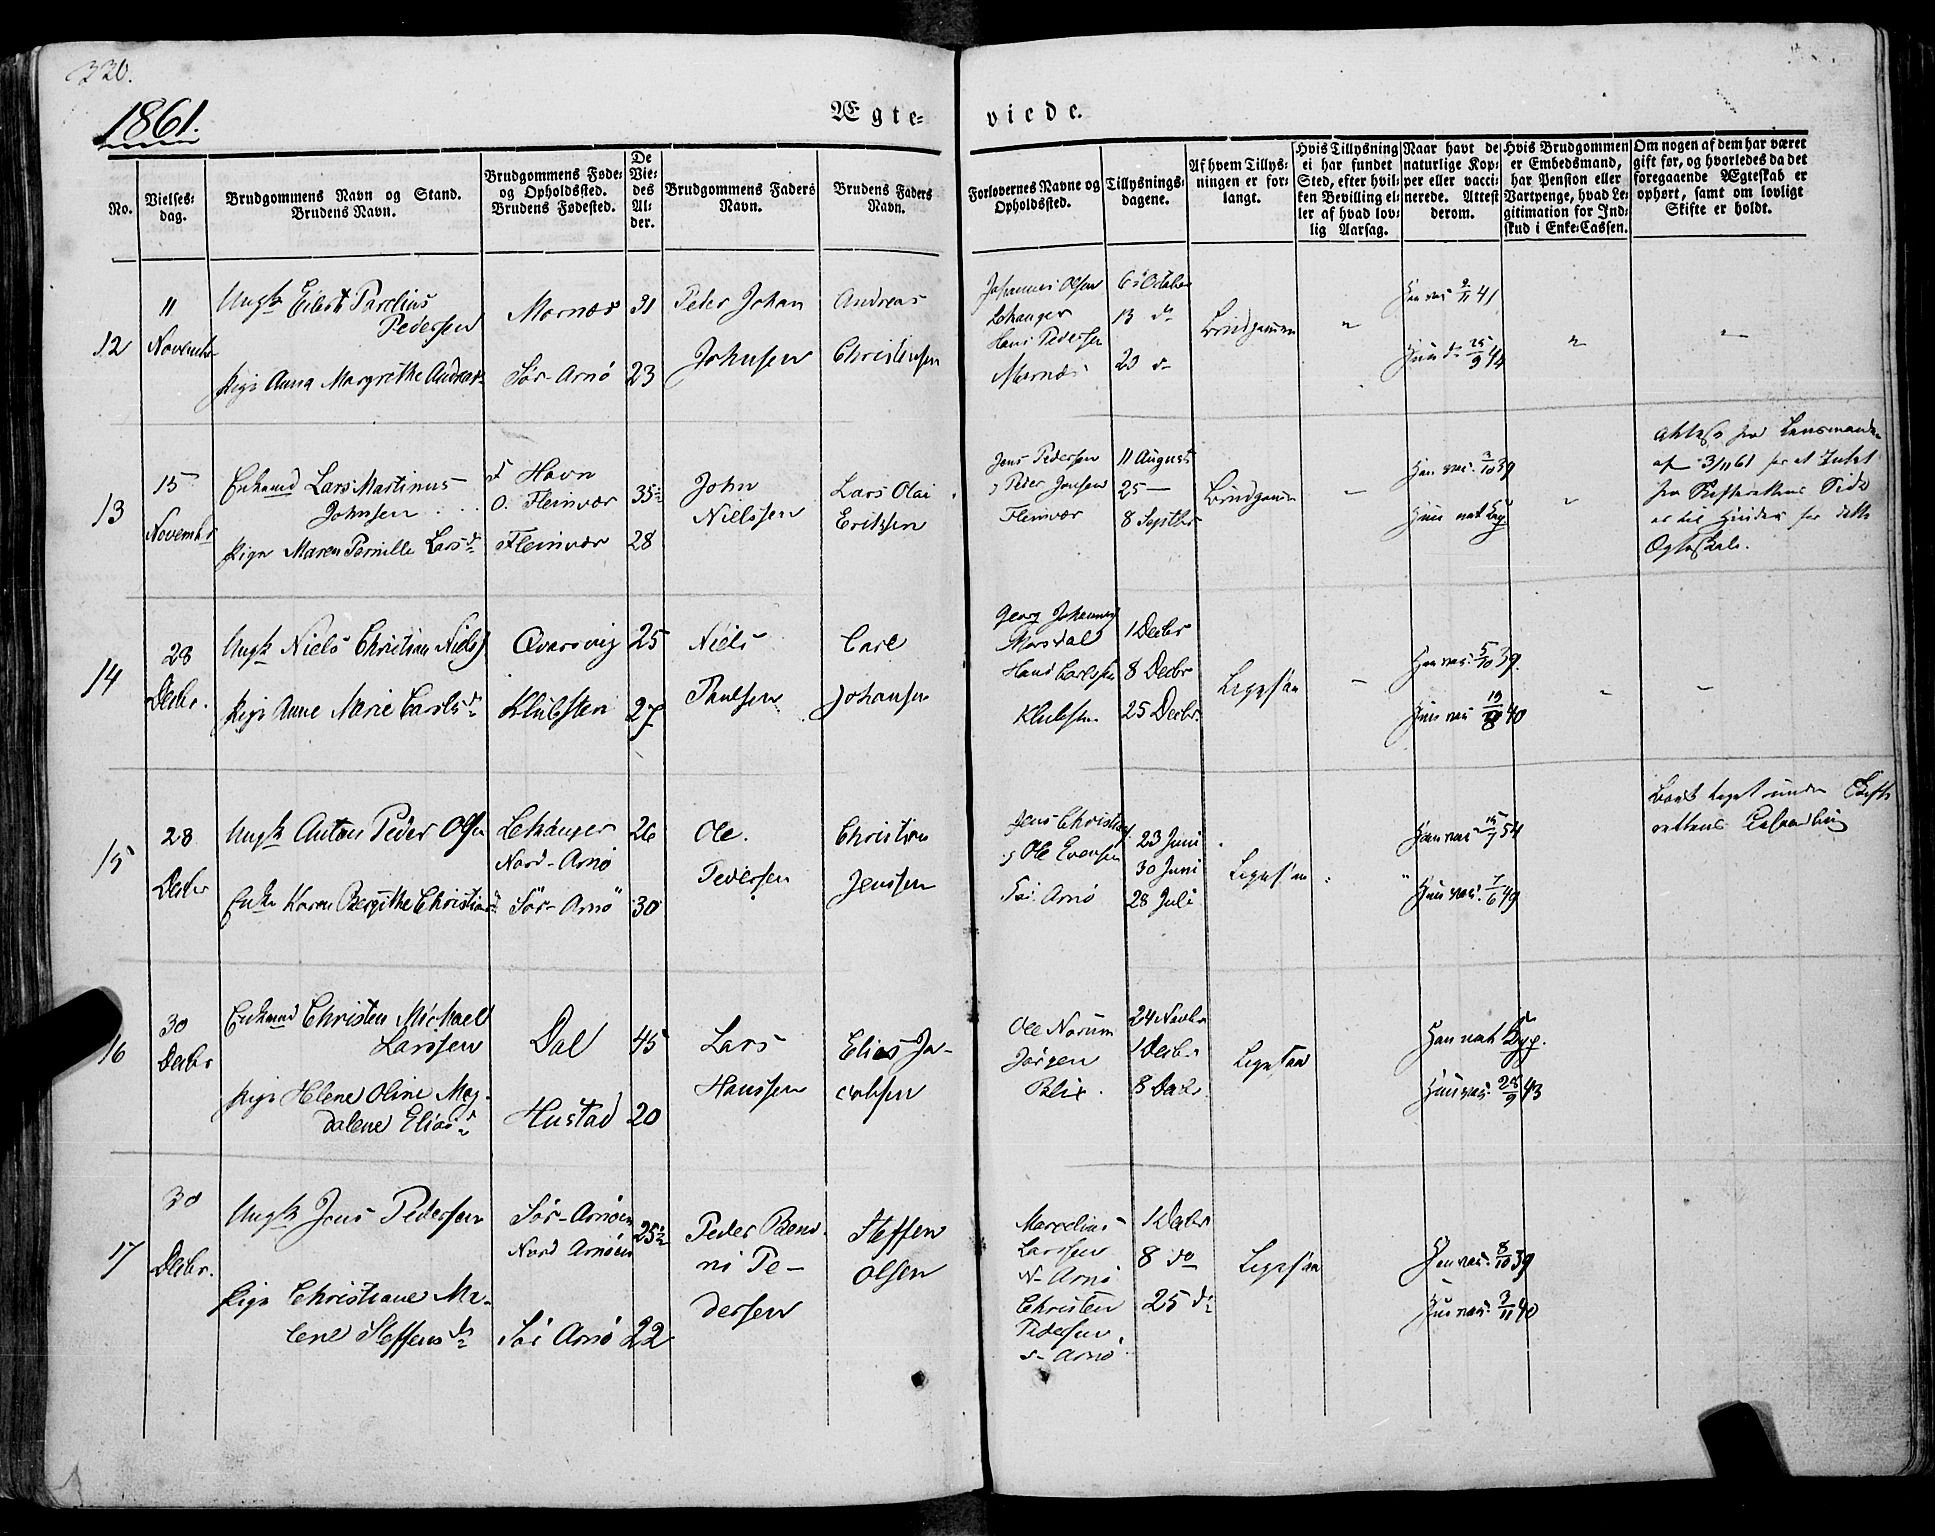 330.
1861.
Ægte-
viede.
No.
Vielses-
dag.
Brudgommens Navn og Stand.
Brudens Navn.
Brudgommens Føde-
og Opholdssted.
Brudens Fødested.
De
Vie-
des
Al-
der.
Brudgommens Faders
Navn.
Brudens Faders
Navn.
Forlovernes Navne og
Opholdssted.
Tillysnings-
dagene.
Af hvem Tillys-
ningen er for-
langt.
Hvis Tillysning
ei har fundet
Sted, efter hvil-
ken Bevilling el-
ler af hvad lov-
lig Aarsag.
Naar havt de
naturlige Kop-
per eller vacci-
nerede. Attest
derom.
Hvis Brudgommen
er Embedsmand,
har Pension eller
Vartpenge, hvad Le-
gitimation for Ind-
skud i Enke-Cassen.
Om nogen af dem har været
gift før, og hvorledes da det
foregaaende Ægteskab er
ophørt, samt om lovligt
Skifte er holdt.
12
11
Novembr
Ungk Eilert Parelius
Pedersen
Pige Anna Margrethe Andreasd
Mornæs
Sør-Arnø
31
23
Peter Johan
Johnsen
Andreas
Christensen
Johannes Olsen
Lekanger
Hans Pedersen
Mornæs
6 October
13 do
20 d
Brudgommen
"
Han vac 9/11 41
Hun d 25/9 44
"
"
13
15
Novembr
Enkemd Lars Martinus
Johnsen
Pige Maren Pernille Larsd
F Havn
O. Fleinvær
Fleinvær
35½
28
John
Nielssen
Lars Olai
Eritzsen
Jens Pedersen
Peter Jensen
Fleinvær
11 August
25 —
8 Septbr
Brudgommen
"
Han vac. 3/10 39
Hun nat Kop
"
Attest fra Lensmanden
af 3/11 61 for at Intet
fra Skifterettens Side
er til Hinder for dette
Ægteskab.
14
28
Decbr.
Ungk Niels Christian Niels
Pige Anne Marie Carlsd
Qvarsvig
Klubsten
25
27
Niels
Paulsen
Carl
Johansen
Georg Johannes
Morsdal
Hans Carlssen
Klubsten
1 Decbr
8 Decbr
25 Decbr
Ligesaa
"
Han vac. 5/10 39.
Hun vac 19/8 40
"
"
15
28
Decbr
Ungk Anton Peder Olsen
Enke Karen Bergithe Christiansd
Lekanger
Nord-Arnø
Sør-Arnø
26
30
Ole
Pedersen
Christian
Jenssen
Jens Christians.
Ole Evensen
Arnø
23 Juni
30 Juni
28 Juli
Ligesaa
"
Han vac 15/7 54
Hun vac. 7/6 49
Boet taget under Skifte
rettens Behandling
16
30
Decbr
Enkemd Christen Michael
Larssen
Pige Helene Oline Mag-
dalene Eliasd
Dal
Hustad
45
20
Lars
Hanssen
Elias Ja-
cobsen
Ole Norum
Jørgen
Blix.
24 Novbr
1 Decbr
8 Decbr
Ligesaa
Han nat Kop.
Hun vac. 28/9 43
17
30
Decbr.
Ungk Jens Pedersen
Pige Christiane Ma-
lene Steffensd
Sør-Arnøen
Nord Arnøen
Sør Arnø
25½
22
Peder Bend-
Pe-
dersen
Steffen
Olsen
Marcelius
Larssen
N-Arnø
Christen
Pedersen,
S-Arnø
1 Decbr
8 do
25 d
Ligesaa
Han vac. 8/10 39
Hun vac. 3/11 40